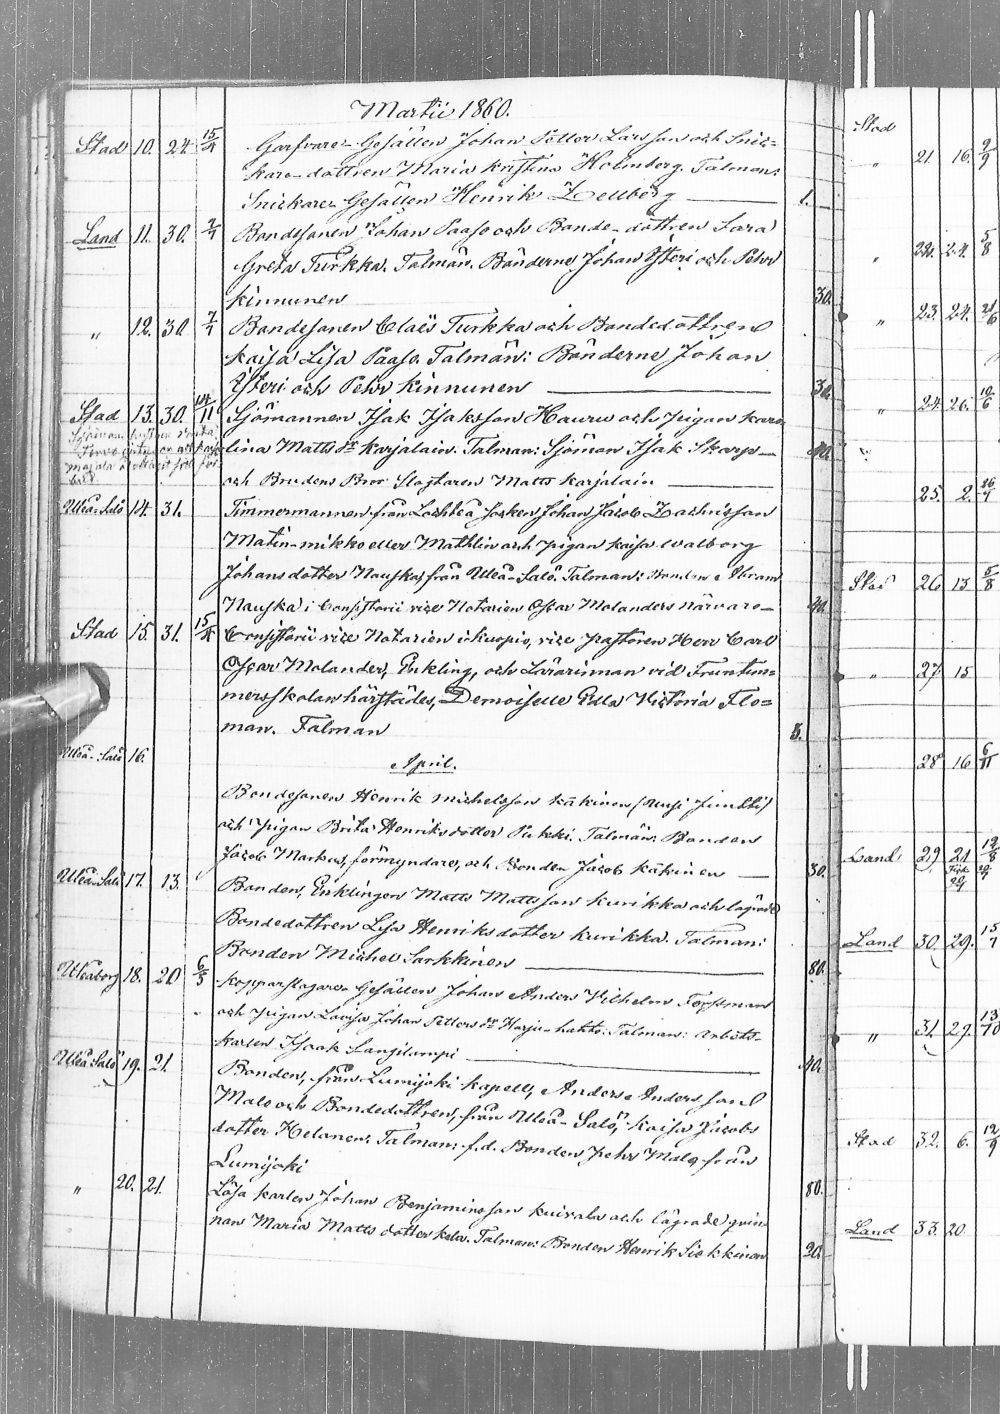 Martii 1860.
Stad 10. 24 15/4 Garfvare-Gesällen Johan Petter Larsson och Snic-
kare-dottren Maria Kristina Holmberg. Talman:
Snickare Gesällen Henrik Zellberg 1.
Land 11. 30. 7/7 Bondesonen Johan Paaso och Bonde-dottren Sara
Greta Turkka. Talmän. Bönderne Johan Ysteri och Pehr
Kinnunen 30.
" 12. 30 7/7 Bondesonen Claës Turkka och Bondedottren
Kaisa Lisa Paaso. Talmän: Bönderne Johan
Ysteri och Pehr Kinnunen 30.
Stad 13. 30. 14/11 Sjömannen Isak Isaksson Hauru och pigan Karo-
lina Matts dr Karjalain. Talman: Sjöman Isak Skarp 40.
och Brudens Bror Slagtaren Matts Karjalain
Uleå-Salo 14. 31. Timmermannen från Lochteå socken Johan Jacob Zachrisson
Matin-mikko eller Mathlin och pigan Kaisa Walborg
Johansdotter Nauska, från Uleå-Salo. Talman: Bonden Abram
Nauska i Consistorii vice Notarien Oscar Molanders närvaro 40.
Stad 15. 31. Consistorii vice Notarien i Kuopio, vice pastoren Herr Carl
Oscar Molander, Enkling, och Lärarinnan vid Fruntim-
mersskolan härstädes, Demoiselle Edla Victoria Flo-
man. Talman 5.
April.
Uleå-Salo 16. Bondesonen Henrik Michelsson Käkinen (Uusi Juntti)
och pigan Brita Henriksdotter Pukki. Talmän: Bonden
Jacob Markus, förmyndare, och Bonden Jacob Käkinen 30.
Uleå-Salo 17. 13. Bonden, Enklingen Matts Mattsson Kurikka och lägrade
Bondedottren Lisa Henriksdotter Kurikka. Talman:
Bonden Michel Sarkkinen 80.
Uleåborg 18. 20 6/5 Kopparslagare Gesällen Johan Anders Vilhelm Forssman
och pigan Lovisa Johan Petters dr Harju-hahto. Talman: Arbets-
karlen Isaak Langilampi 40.
Uleå Salo 19. 21. Bonden, från Lumijoki kapell, Anders Andersson
Malo och Bondedottren, från Uleå-Salo, Kaisa Jacobs
dotter Kelanen. Talman: f.d. Bonden Pehr Malo från
Lumijoki 80.
" 20. 21. Lösa karlen Johan Benjaminsson Kuivala och lägrade qvin-
nan Maria Matts dotter Kela. Talman: Bonden Henrik Siekkinen 20.
Stad
" 21 16. 2/9
" 22. 24. 5/8
" 23. 24. 21/6
" 24. 26. 10/6
25. 2. 26/7
Stad 26 13 5/8
" 27 15
28 16 6/11
Land 29 21 12/8
Land 30. 29. 15/7
" 31. 29. 13/10
Stad 32. 6. 12/9
Land 33. 20